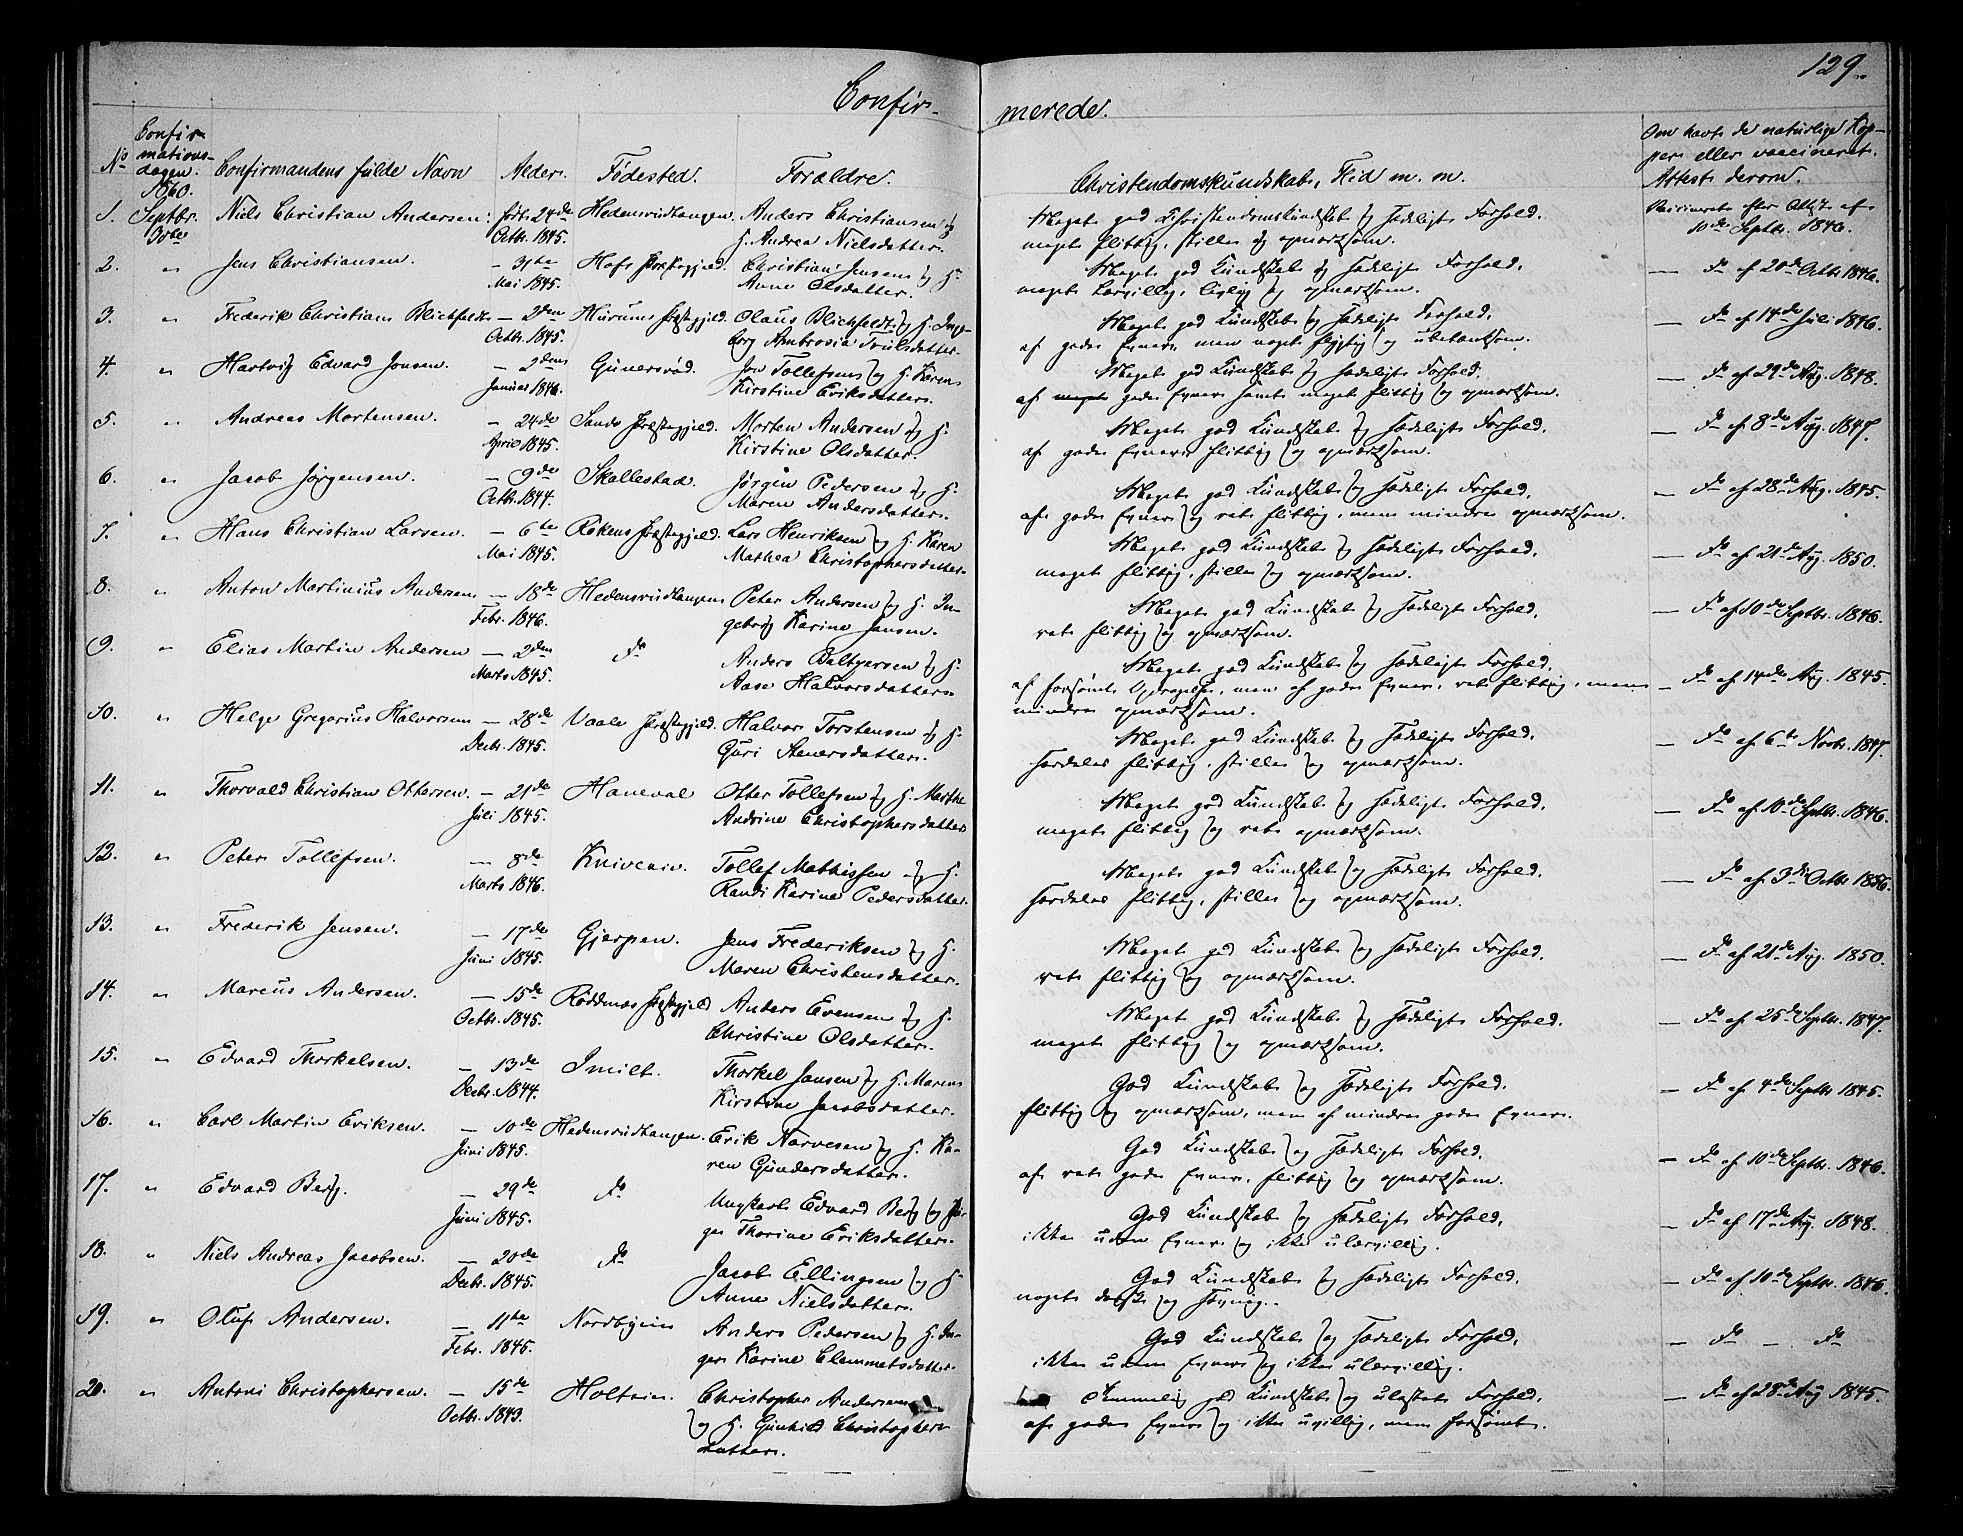 129.
Confir-
merede.
No
Confir-
mations-
dagen.
1860.
Confirmandens fulde Navn
Alder.
Fødested.
Forældre.
Christendomskundskab, Flid m. m.
Om havt de naturlige Kop-
per eller vaccineret.
Attest derom.
1. Septbr. Niels Christian Andersen. født 24de Hedensrudtangen. Anders Christiansen og
30te Octbr. 1845. H. Andrea Nielsdatter.
Meget god Christendomskundskab og sædeligt Forhold.
meget flittig, stille og opmærksom.
Vaccineret efter Attest af
10de Septbr. 1846.
2. " Jens Christiansen. — 31te Hofs Præstegjeld. Christian Jensen og H.
Mai 1845. Anne Olsdatter.
Meget god Kundskab og sædeligt Forhold.
meget lærvillig, livlig og opmærksom.
— Do af 20de Octbr 1846.
3. " Frederik Christian Blichfeldt — 2den Hurums Præstegjeld. Olaus Blichfeldt og H. Inge-
Octbr. 1845. borg Ambrosia Poulsdatter.
Meget god Kundskab og sædeligt Forhold.
af gode Evner men noget flygtig og ubetænksom.
— Do af 14de Juli 1846.
4. " Hartvig Edvard Jonsen. — 2den Gunersrød. Jon Tollefsen og H. Karen
Januar 1846. Kirstine Eriksdatter.
Meget god Kundskab og sædeligt Forhold.
af meget gode Evner samt meget flittig og opmærksom.
— Do af 29de Aug. 1848.
5. " Andreas Mortensen. — 24de Sands Præstegjeld. Morten Andersen og H.
April 1845. Kirstine Olsdatter.
Meget god Kundskab og sædeligt Forhold.
af gode Evner flittig og opmærksom.
— Do af 8de Aug. 1847.
6. " Jacob Jørgensen. — 9de Skallestad. Jørgen Pedersen og H.
Octbr. 1844. Maren Andersdatter.
Meget god Kundskab og sædeligt Forhold.
af gode Evner og ret flittig, men mindre opmærksom.
— Do af 28de Aug. 1845.
7. " Hans Christian Larsen. — 6te Røkens Præstegjeld. Lars Henriksen og H. Karen
Mai 1845. Mathea Christophersdatter.
Meget god Kundskab og sædeligt Forhold.
meget flittig, stille og opmærksom.
— Do af 21de Aug. 1850.
8. " Anton Martinius Andersen — 18de Hedensrudtangen Peter Andersen og H. In-
Febr. 1846. gebrig Karine Jansen.
Meget god Kundskab og sædeligt Forhold.
ret flittig og opmærksom.
— Do af 10de Septbr. 1846.
9. " Elias Martin Andersen — 2den Do Anders Baltzersen og H.
Marts 1845. Aase Halvorsdatter.
Meget god Kundskab og sædeligt Forhold.
af forsømt Opdragelse, men af gode Evner, ret flittig, men
mindre opmærksom.
— Do af 14de Aug. 1845.
10. " Helge Gregorius Halvorsen — 28de Vaale Præstegjeld. Halvor Torstensen og H.
Decbr. 1845. Guri Stenersdatter.
Meget god Kundskab og sædeligt Forhold.
særdeles flittig, stille og opmærksom.
— Do af 6te Novbr. 1847.
11. " Thorvald Christian Ottersen. — 21de Haneval Otter Tollefsen og H. Marthe
Juli 1845. Andrine Christophersdatter
Meget god Kundskab og sædeligt Forhold.
meget flittig og ret opmærksom.
— Do af 10de Septbr. 1846.
12. " Peter Tollefsen. — 8de Kniveien. Tollef Mathissen og H.
Marts 1846. Randi Karine Pedersdatter.
Meget god Kundskab og sædeligt Forhold.
særdeles flittig, stille og opmærksom.
— Do af 3de Octbr 1856.
13. " Frederik Jensen. — 17de Gjerpen. Jens Frederiksen og H.
Juni 1845. Maren Christensdatter.
Meget god Kundskab og sædeligt Forhold.
ret flittig og opmærksom.
— Do af 21de Aug. 1850.
14. " Marcus Andersen. — 15de Røddenæs Præstegjeld Anders Evensen og H.
Octbr. 1845. Christine Olsdatter.
Meget god Kundskab og sædeligt Forhold.
meget flittig og opmærksom.
— Do af 25de Septbr. 1847.
15. " Edvard Thorkelsen. — 13de Smilt. Thorkel Jansen og H. Maren
Decbr. 1844. Kirstine Jacobsdatter.
God Kundskab og sædeligt Forhold.
flittig og opmærksom, men af mindre gode Evner.
— Do af 4de Septbr 1845.
16. " Carl Martin Eriksen. — 10de Hedensrudtangen. Erik Narvesen og H. Ka-
Juni 1845. ren Gundersdatter.
God Kundskab og sædeligt Forhold.
af ret gode Evner, flittig og opmærksom.
— Do af 10de Septbr. 1846.
17. " Edvard Berg. — 29de Do Ungkarl Edvard Berg og Pi-
Juni 1845. ge Thorine Eriksdatter.
God Kundskab og sædeligt Forhold.
ikke uden Evner og ikke ulærvillig.
— Do af 17de Aug. 1848.
18. " Niels Andreas Jacobsen. — 20de Do Jacob Ellingsen og H.
Decbr. 1845. Anne Nielsdatter.
God Kundskab og sædeligt Forhold.
noget dorsk og
— Do af 10de Septbr. 1846.
19. " Oluf Andersen. — 11te Nordbyeie Anders Pedersen og H. In-
Febr. 1845. ger Karine Clemmetsdatter.
God Kundskab og sædeligt Forhold.
ikke uden Evner og ikke ulærvillig.
— Do — Do
20. " Antoni Christophersen. — 15de Holteie. Christopher Andersen
Octbr. 1843. og H. Gunhild Christophers-
datter.
Temmelig god Kundskab og ulastet Forhold.
af gode Evner og ikke uvillig, men forsømt.
— Do af 28de Aug 1845.